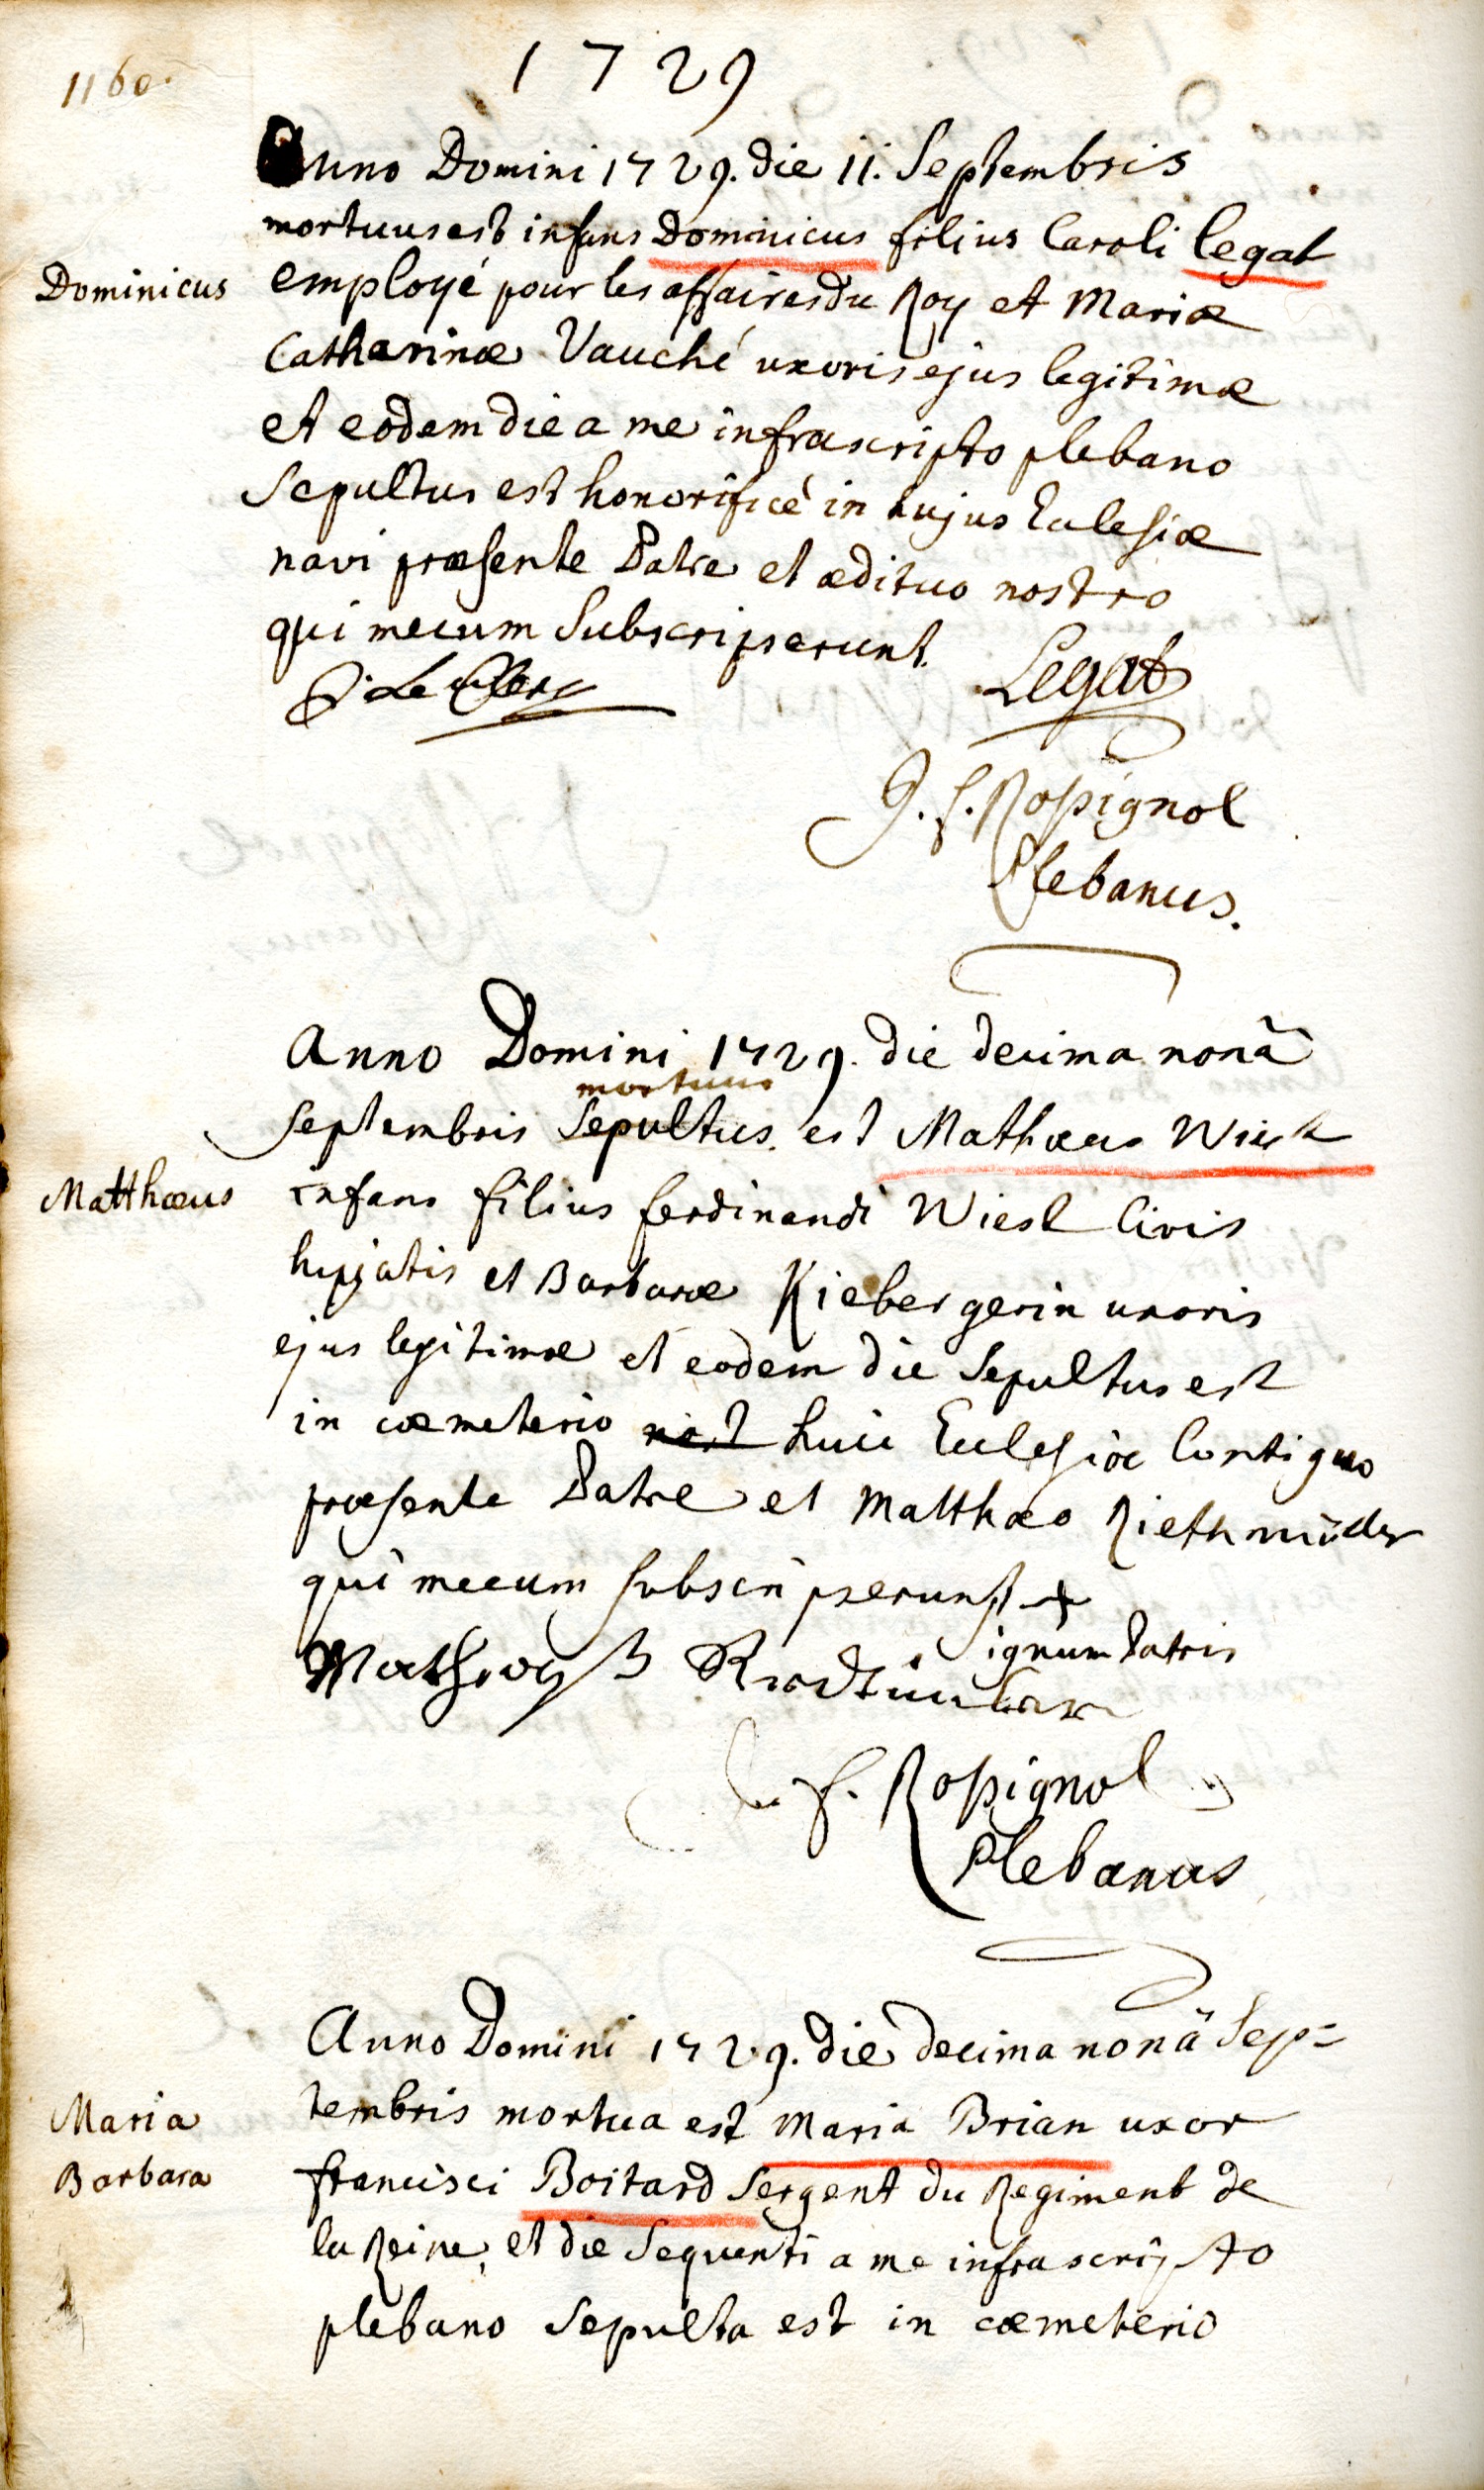 1160.
1729
Anno Domini 1729. die 11. Septembris
mortuus est infans Dominicus filius Caroli legat
Dominicus
employé pour les affaires du Roy et Mariæ
Catharinæ Vauché uxoris ejus legitimæ
et eodem die a me infrascripto plebano
Sepultus est honorificè in hujus Ecclesiæ
navi præsente Patre et ædituo nostro
qui mecum Subscripserunt.
Le Clerc
Legat
J. f. Rossignol
Plebanus.
Anno Domini 1729. die decima nonâ
mortuus
Septembris Sepultus est Mathæus Wiest
Matthæus
infans filius ferdinandi Wiest Civis
hujatis et Barbaræ Kiebergerin uxoris
ejus legitimæ et eodem die Sepultus est
in cœmeterio huic Ecclesiæ Contiguo
præsente Patre et Matthæo Riethmüller
qui mecum subscripserunt +
ignum Patris
f. Rossignol
Plebanus
Anno Domini 1729. die decima nonâ Sep=
tembris mortua est Maria Brian uxor
Maria
Barbara
francisci Boitard Sergent du Regiment de
la Reine, et die Sequenti a me infrascripto
plebano Sepulta est in cœmeterio